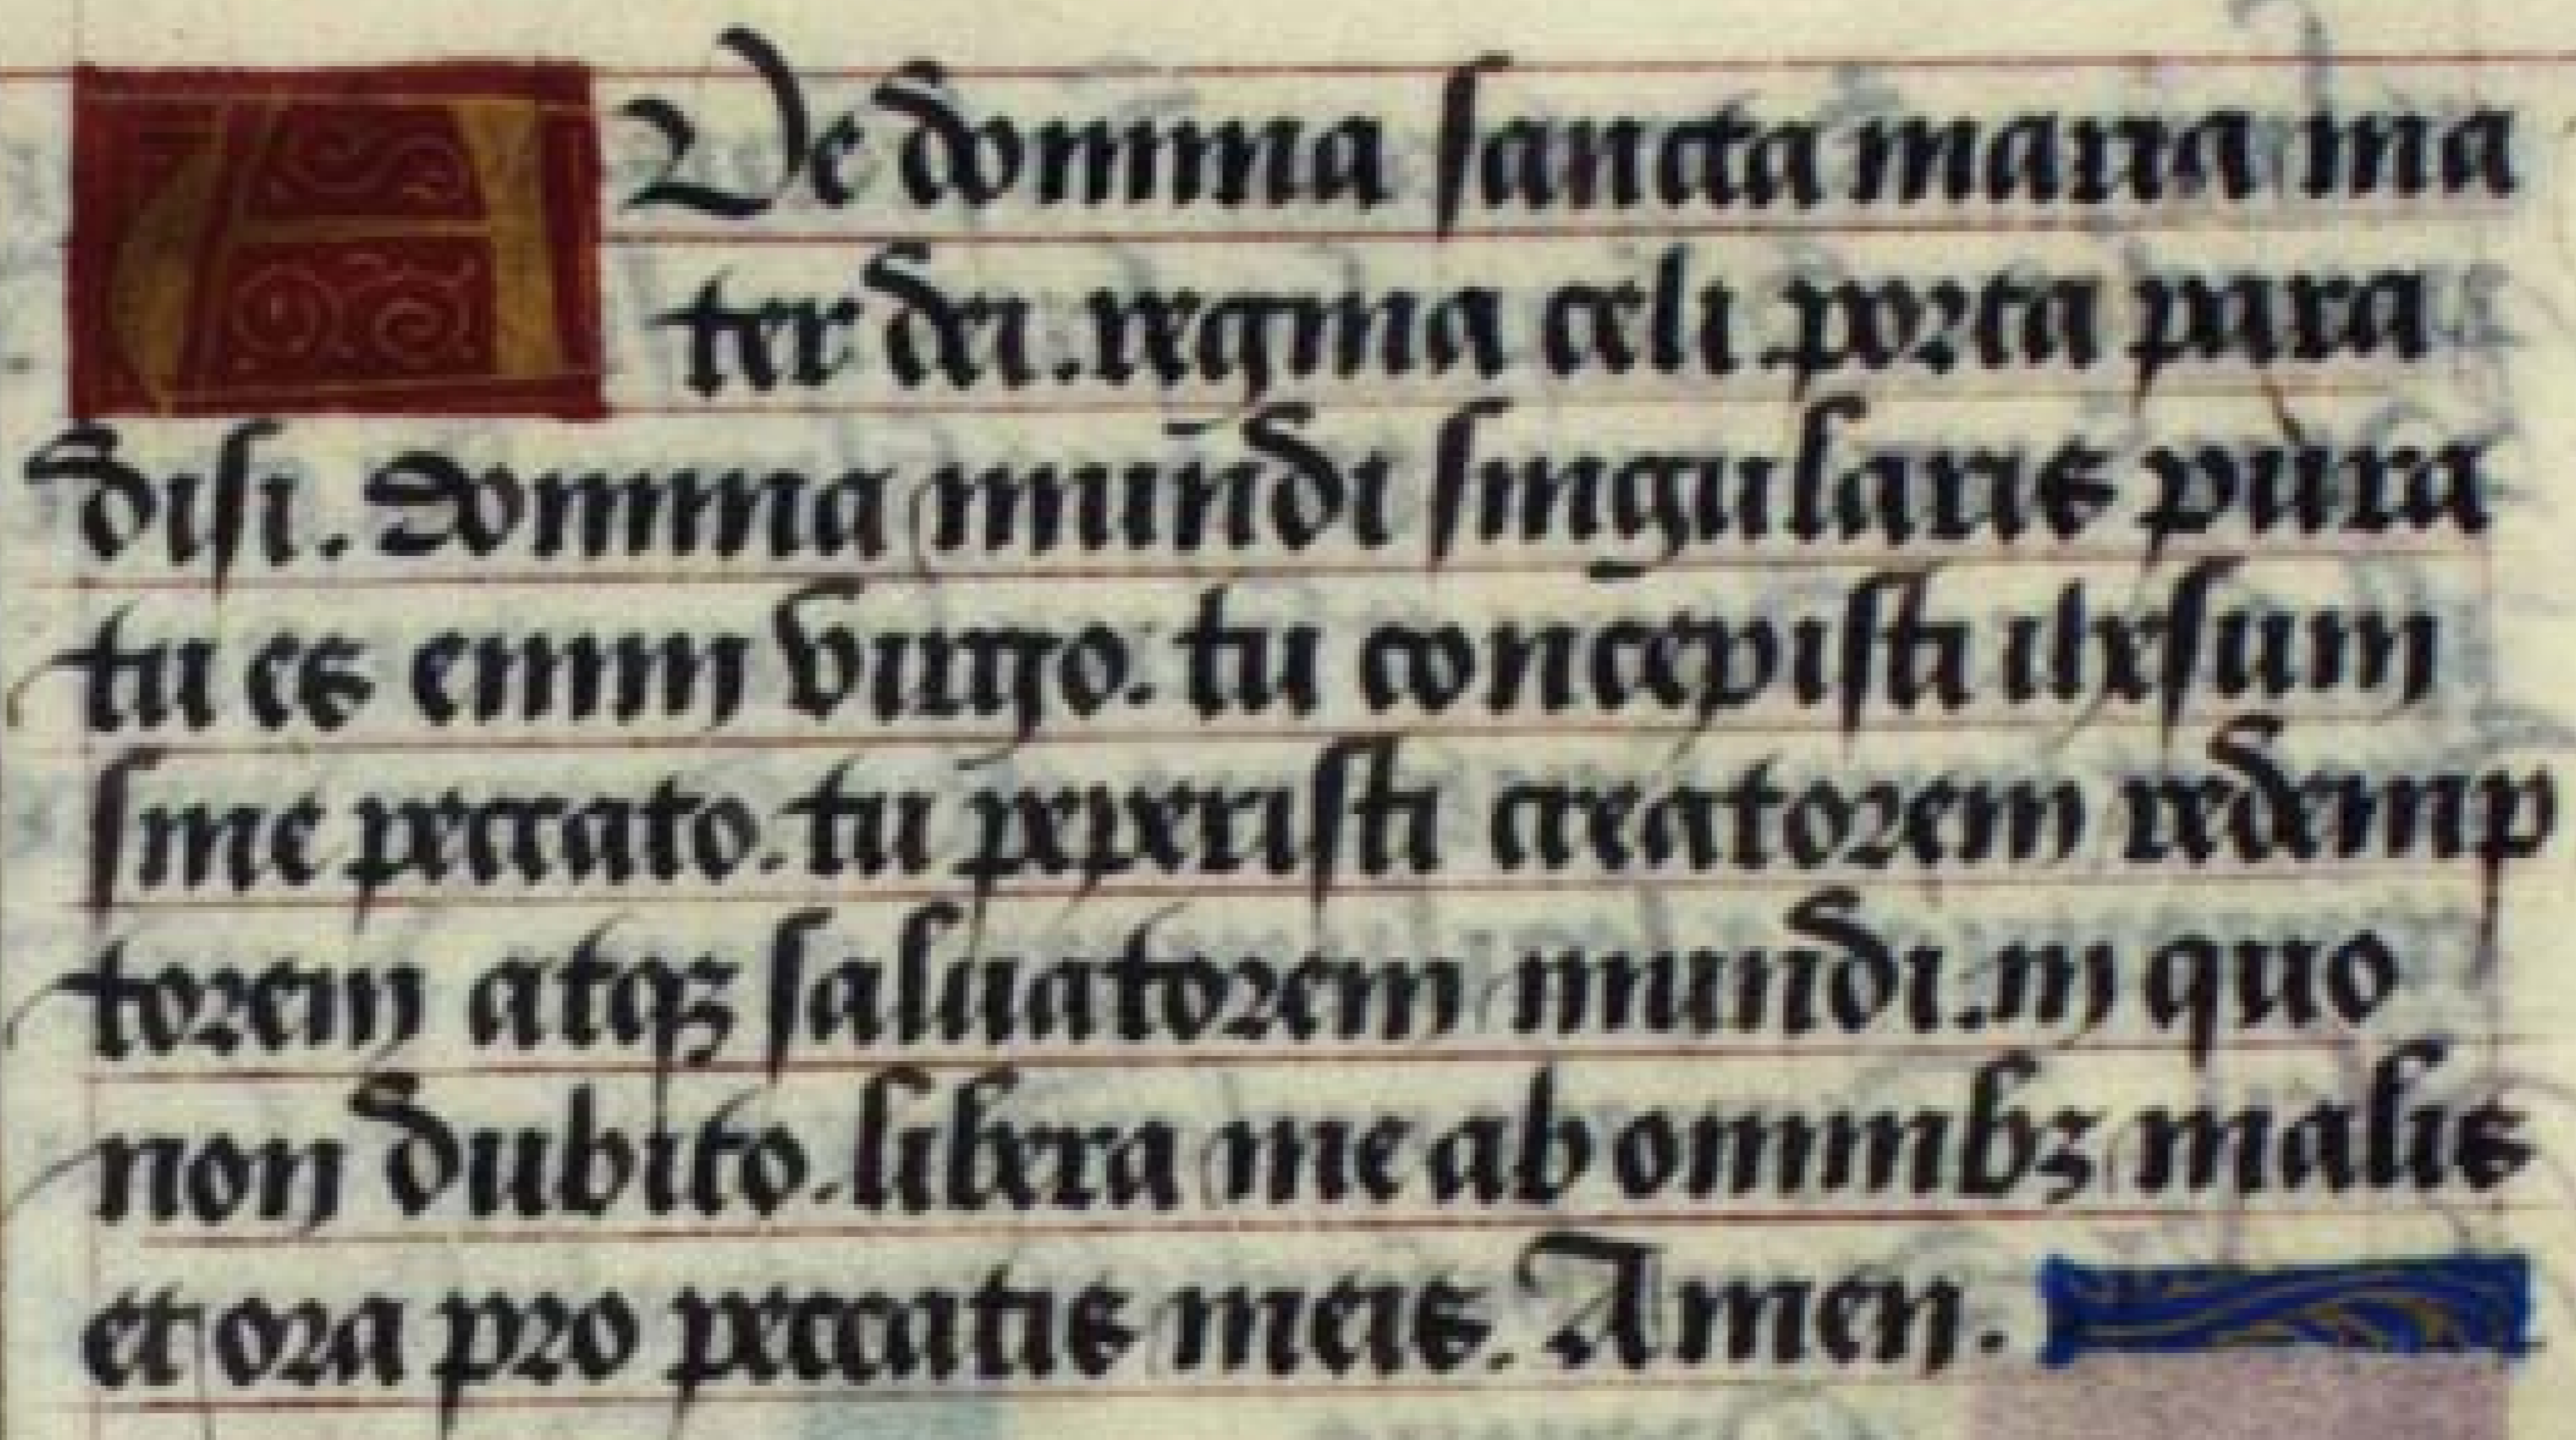 AVe domina sancta maria ma
ter dei. regina celi porta para
disi. Domina mundi singularis pura
tu es enim virgo. tu concepisti ihesum
sine peccato. tu peperisti creatorem redemp
torem atqꝫ saluatorem mundi. in quo
non dubito. libera me ab omnibꝫ malis
et ora pro peccatis meis. Amen.